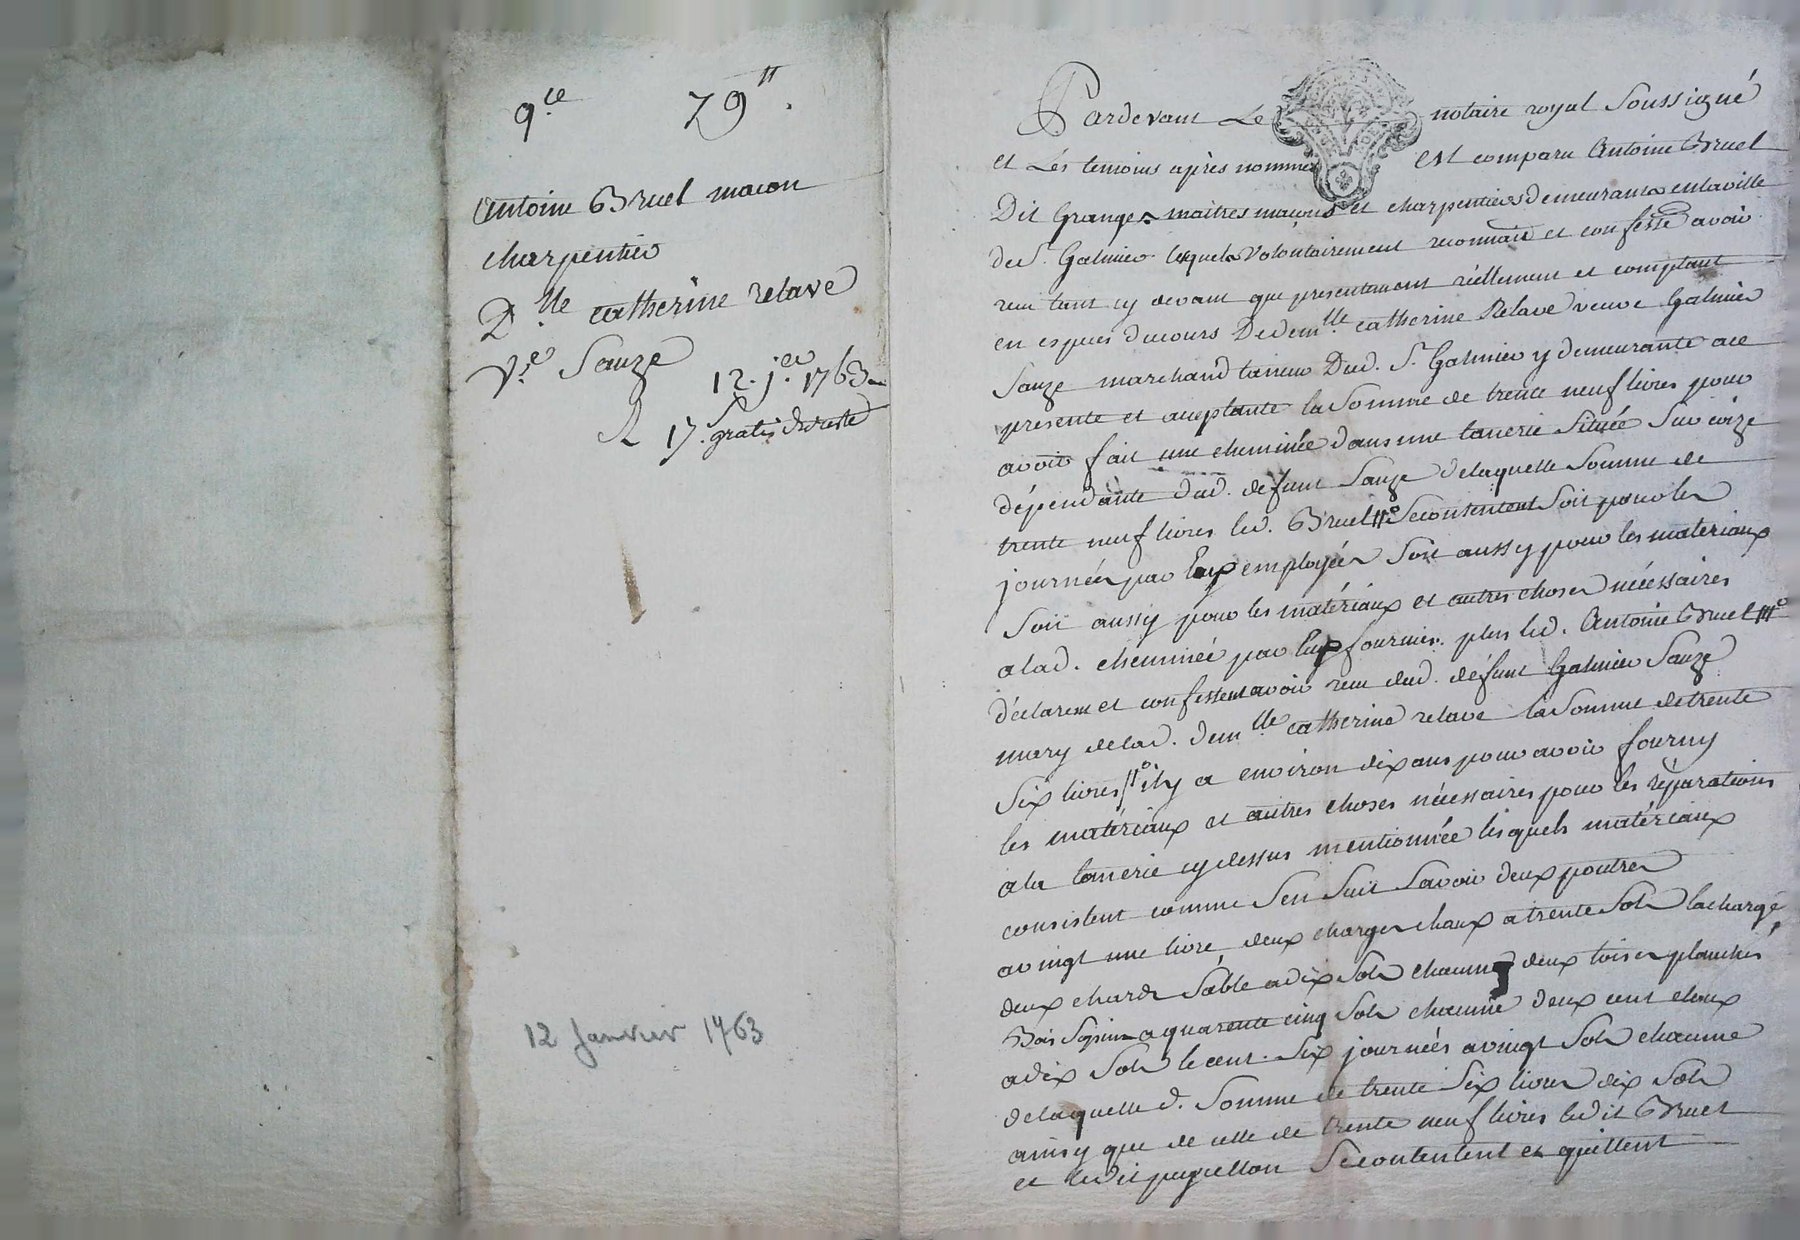 qce 79 ll.
Antoine Bruel macon
charpentier
Dlle catherine relave
Ve Sauze
12. jer 1763
R 17 s gratis du reste
12 Janvier 1763
Pardevant Le notaire royal Soussigné
et Les temoins après nommes est comparu Antoine Bruel
Dit Grange maîtres maçons et charpentiers demeurans en la ville
de St. Galmier lequel volontairement reconnait et confessé avoir
reçu tant cy devant que presentement réellement et comptant
en espèces du cours De demlle catherine Relave veuve Galmier
Sauze marchand tanneur Dud. St. Galmier y demeurante ace
présente et acceptante la Somme de trente neuf livres pour
avoir fait une cheminée dans une tanerie Située Sur coize
dépendante dud. defunt Sauze de laquelle Somme de
trente neuf livres led. Bruel Se contentent Soit pour les
journées par Eux employées Soit aussy pour les materiaux
Soit aussy pour les matériaux et autres choses nécessaires
a lad. cheminée par Eux fournies. plus led. Antoine Bruel
déclarent et confessent avoir reçu dud. défunt Galmier Sauze
mary de lad. demlle catherine relave la Somme de trente
Six livres il y a environ dix ans pour avoir fourny
les matériaux et autres choses nécessaires pour les réparations
a la tanerie cy dessus mentionnée lesquels matériaux
consistent comme S'en Suit Savoir deux poutres
a vingt une livre, deux charges chaux a trente Sols la charge,
deux chards Sable a dix Sols chacun deux toises planches
Bois Sapin a quarente cinq Sols chacune deux cent cloux
a dix Sols le cent. Six journées a vingt Sols chacune
de laquelle d. Somme de trente Six livres dix Sols
ainsy que de celle de trente neuf livres ledit Bruel
et ledit Se contentent et quittent